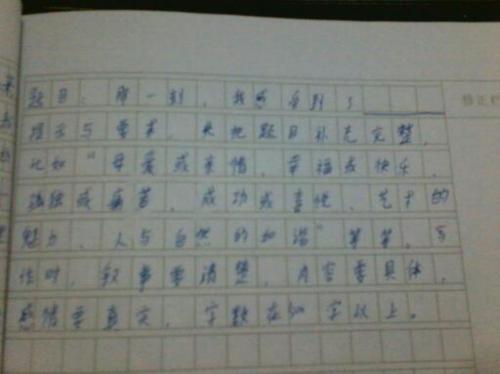 题目：那一刻，我感受到了______
提示与要求：先把题目补充完整，
比如“母爱或亲情、幸福或快乐、
孤独或痛苦、成功或喜悦、艺术的
魅力、人与自然的和谐”等等。写
作时，叙事要清楚，内容要具体，
感情要真实，字数在500字以上。